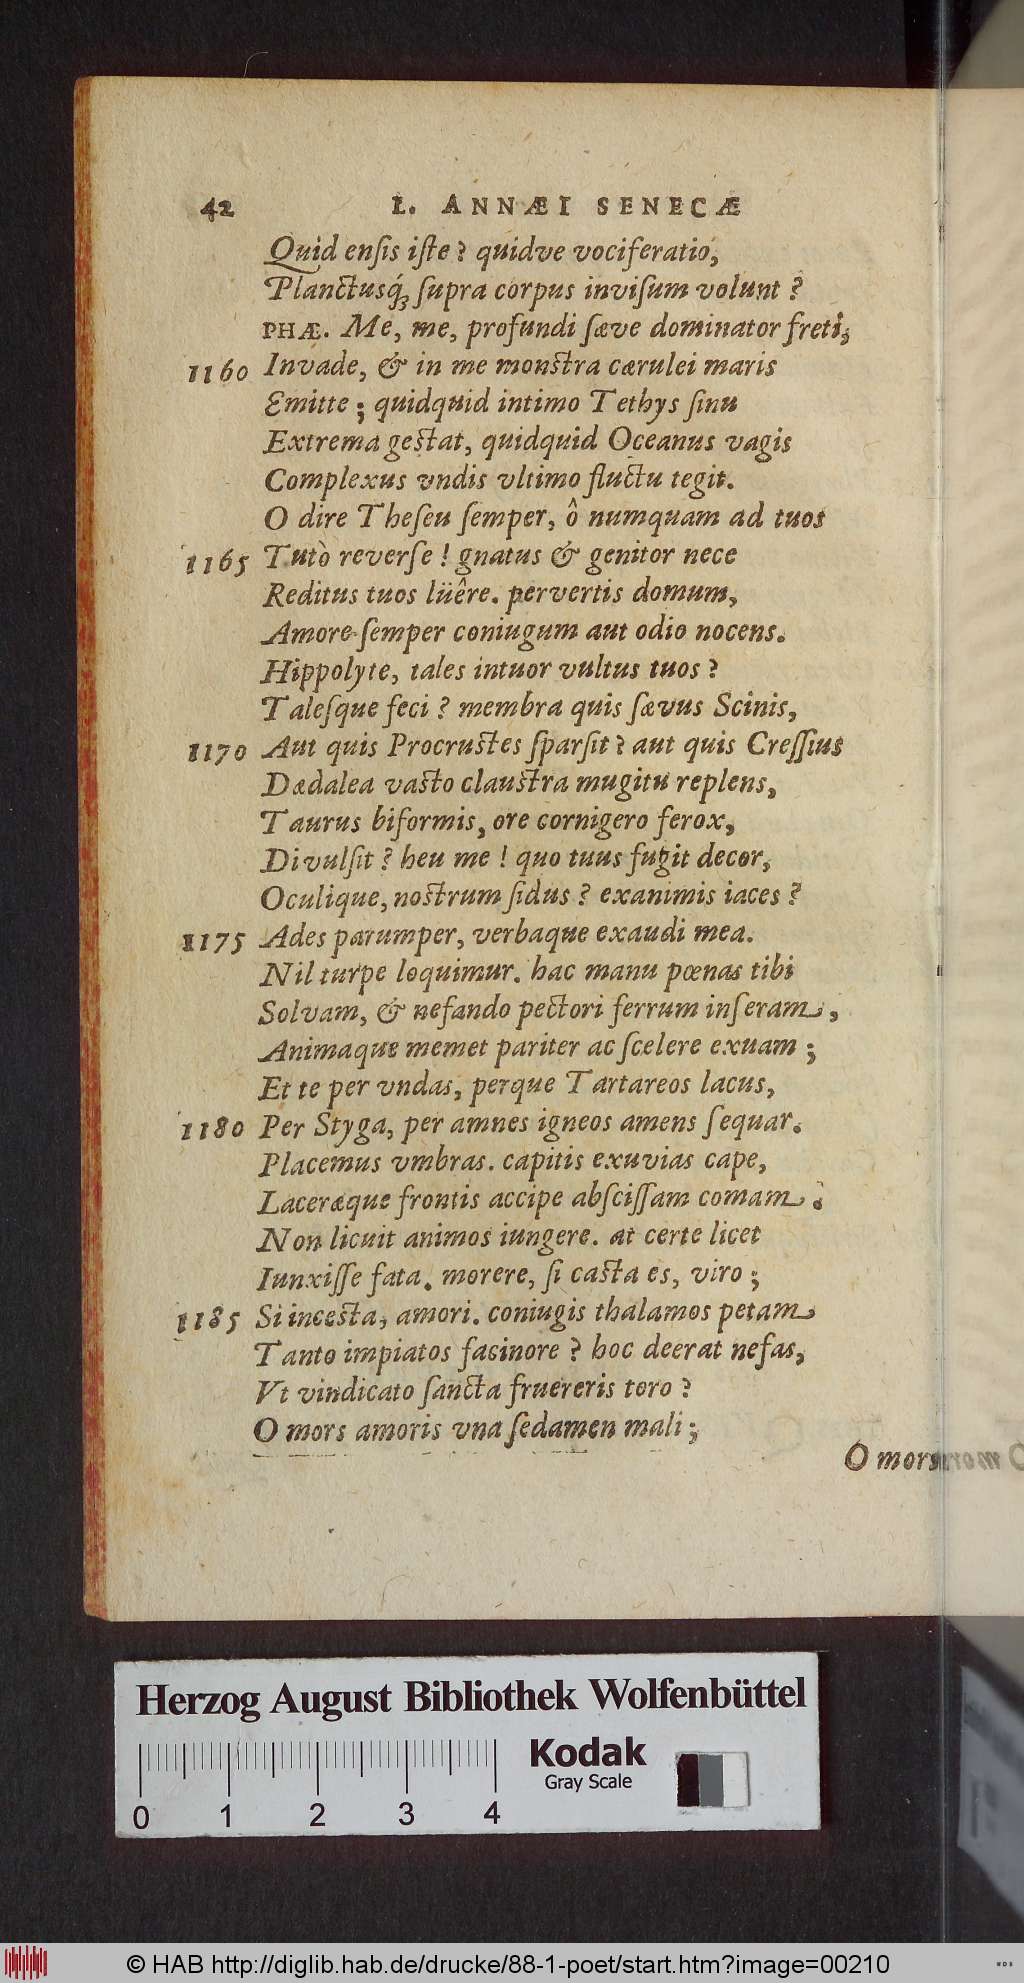 42 L. ANNÆI SENECÆ
Quid enſis iſte? quidve vociferatio,
Planctusq́ꝫ ſupra corpus inviſum volunt?
PHÆ. Me, me, profundi ſæve dominator freti,
1160 Invade, & in me monſtra cærulei maris
Emitte; quidquid intimo Tethys ſinu
Extrema geſtat, quidquid Oceanus vagis
Complexus vndis vltimo fluctu tegit.
O dire Theſeu ſemper, ô numquam ad tuos
1165 Tutò reverſe! gnatus & genitor nece
Reditus tuos lüêre. pervertis domum,
Amore ſemper coniugum aut odio nocens.
Hippolyte, tales intuor vultus tuos?
Taleſque feci? membra quis ſævus Scinis,
1170 Aut quis Procruſtes ſparſit? aut quis Creſſius
Dædalea vaſto clauſtra mugitu replens,
Taurus biformis, ore cornigero ferox,
Divulſit? heu me! quo tuus fugit decor,
Oculique, noſtrum ſidus? exanimis iaces?
1175 Ades parumper, verbaque exaudi mea.
Nil turpe loquimur. hac manu pœnas tibi
Solvam, & nefando pectori ferrum inſeram,
Animaque memet pariter ac ſcelere exuam;
Et te per vndas, perque Tartareos lacus,
1180 Per Styga, per amnes igneos amens ſequar.
Placemus vmbras. capitis exuvias cape,
Laceræque frontis accipe abſciſſam comam.
Non licuit animos iungere. at certe licet
Iunxiſſe fata. morere, ſi caſta es, viro;
1185 Si inceſta, amori. coniugis thalamos petam
Tanto impiatos facinore? hoc deerat nefas,
Vt vindicato ſancta fruereris toro?
O mors amoris vna ſedamen mali;
O mors
Herzog August Bibliothek Wolfenbüttel
Kodak
Gray Scale
0 1 2 3 4
© HAB http://diglib.hab.de/drucke/88-1-poet/start.htm?image=00210